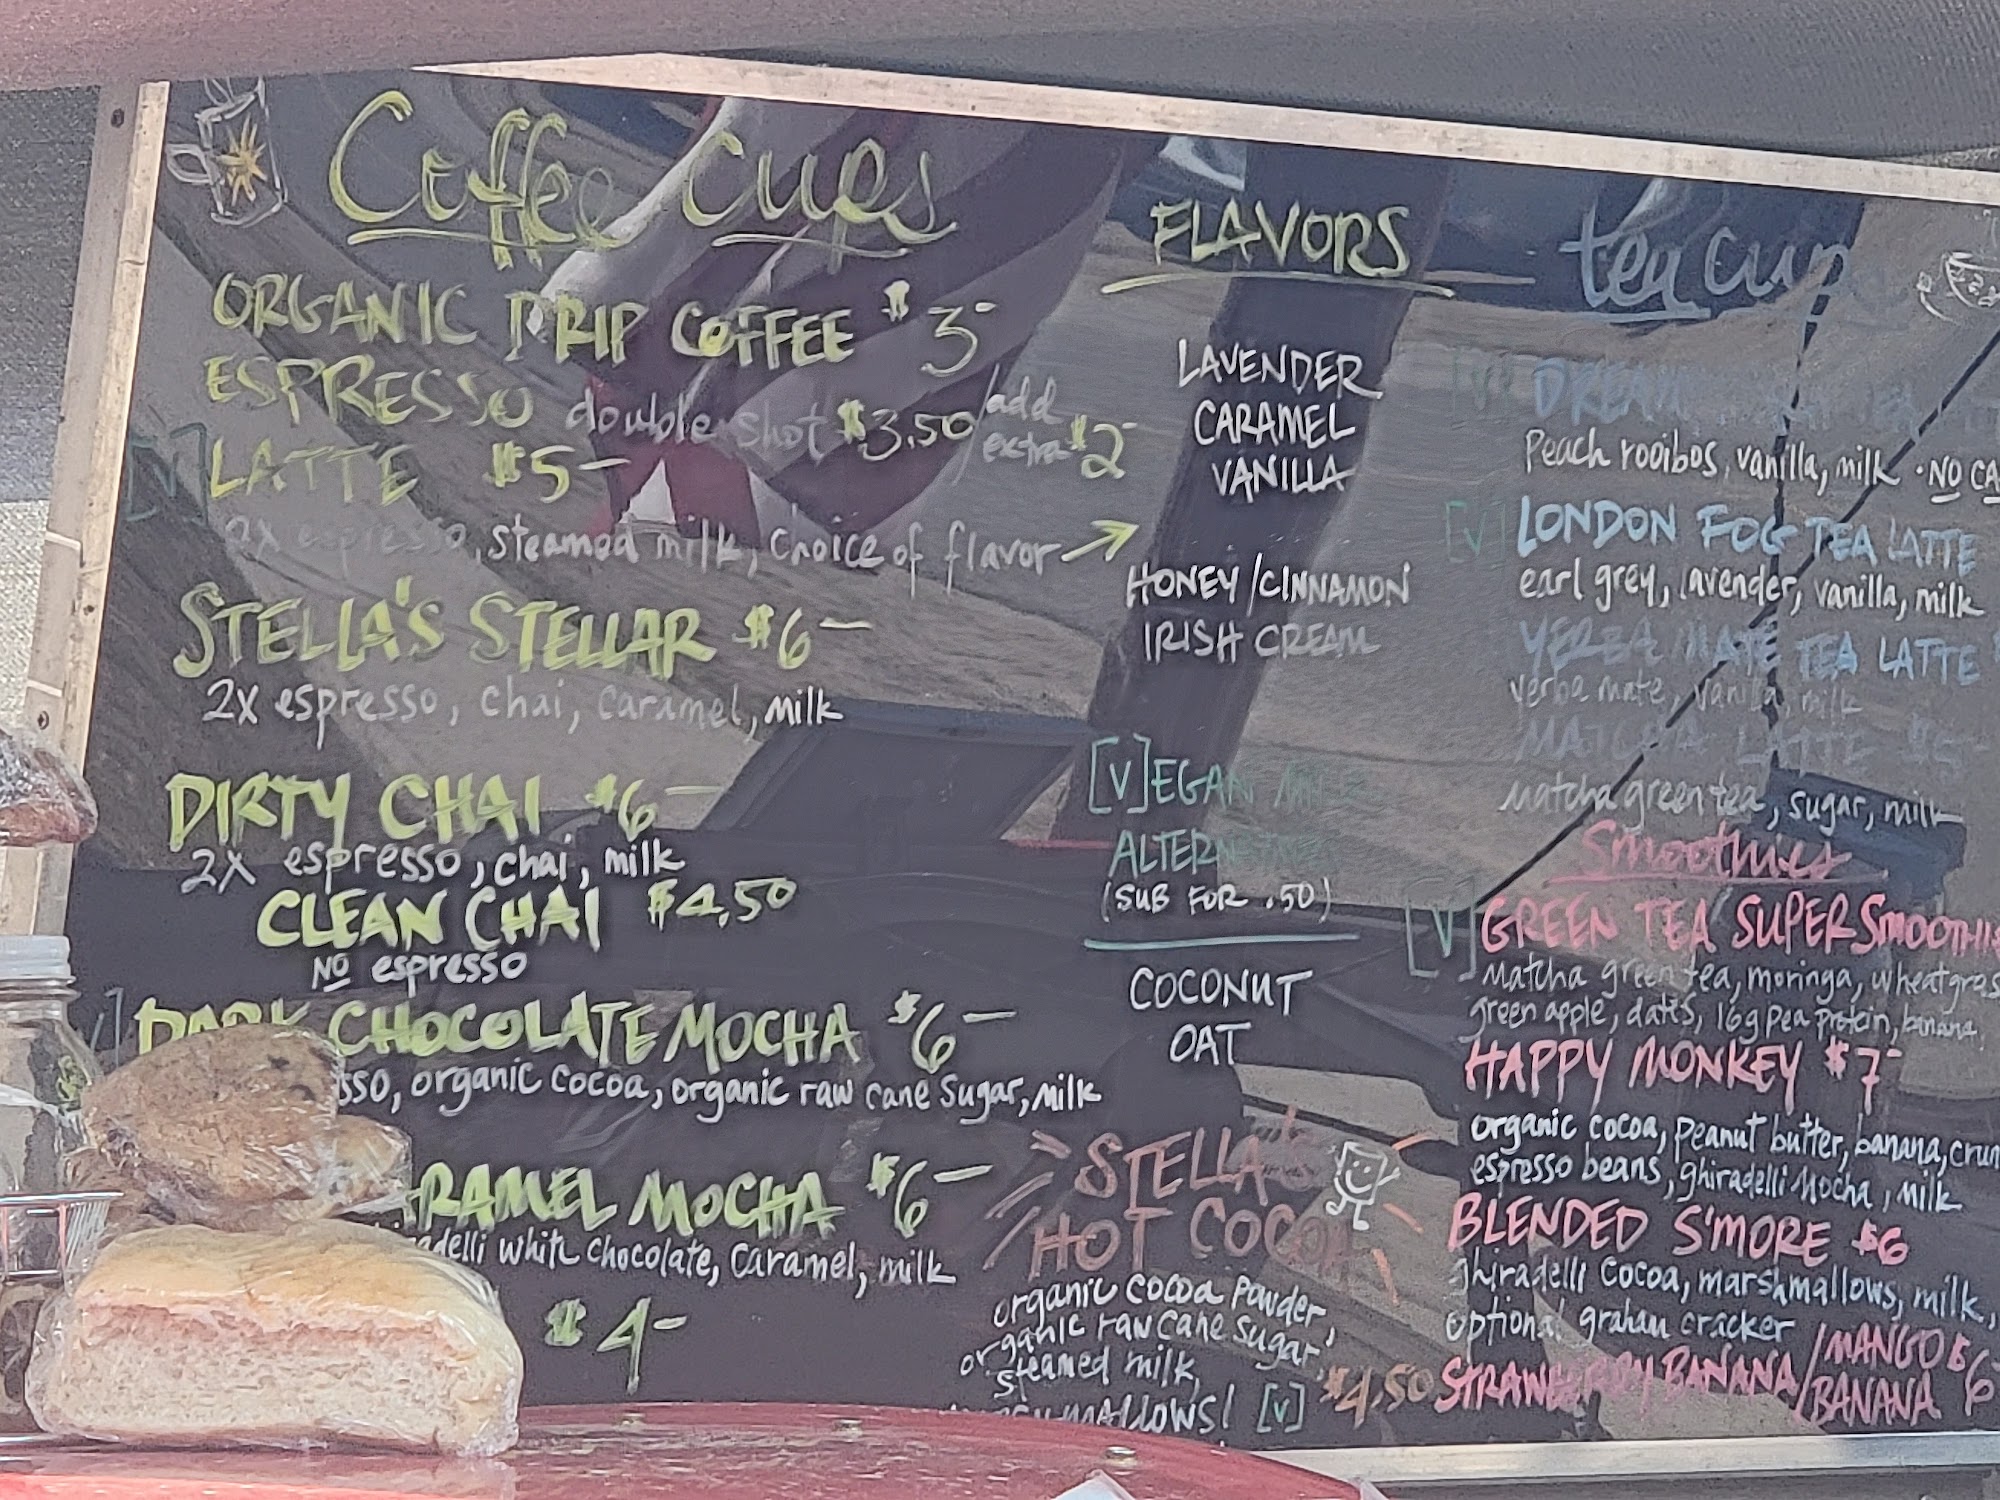 Coffee Cups
ORGANIC DRIP COFFEE $3-
ESPRESSO double shot $3.50 / add extra $2-
[V] LATTE $5-
2x espresso, steamed milk, choice of flavor →
STELLA'S STELLAR $6-
2x espresso, chai, caramel, milk
DIRTY CHAI $6-
2x espresso, chai, milk
CLEAN CHAI $4.50
NO espresso
DARK CHOCOLATE MOCHA $6-
organic cocoa, organic raw cane sugar, milk
MOCHA $6-
white chocolate, caramel, milk
$4-
FLAVORS
LAVENDER
CARAMEL
VANILLA
HONEY/CINNAMON
IRISH CREAM
[V]EGAN MILK
ALTERNATIVES
(SUB FOR .50)
COCONUT
OAT
STELLA'S
HOT COCOA
organic cocoa powder,
organic raw cane sugar,
steamed milk,
[V] $4.50
tea cups
[V] DREAM
Peach rooibos, vanilla, milk · NO
[V] LONDON FOG TEA LATTE
earl grey, lavender, vanilla, milk
YERBA MATE TEA LATTE
yerba mate, vanilla, milk
MATCHA LATTE
Matcha green tea, sugar, milk
Smoothies
[V] GREEN TEA SUPER
Matcha green tea, moringa,
green apple, dates, 16g pea protein, banana
HAPPY MONKEY $7-
organic cocoa, peanut butter, banana,
espresso beans, ghiradelli mocha, milk
BLENDED S'MORE $6
ghiradelli cocoa, marshmallows, milk,
optional graham cracker
STRAWBERRY BANANA / MANGO BANANA $6